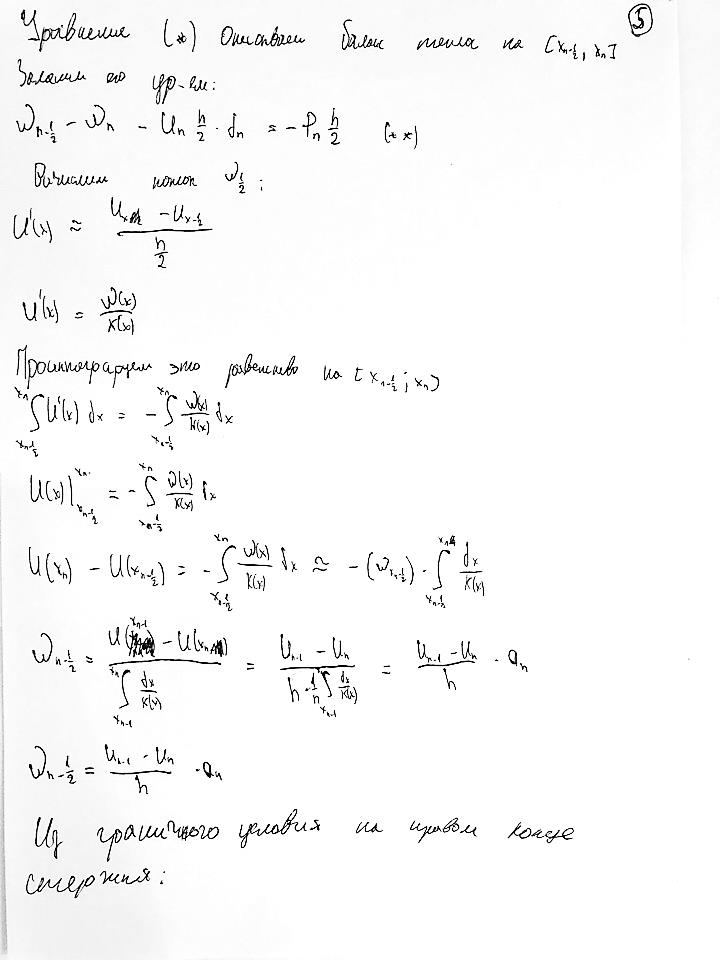 5
Уравнение (*) Описывает баланс тепла на [x_{n-1/2}, x_n]
Запишем его ур-ем:
W_{n-1/2} - W_n - U_n h/2 · d_n = -f_n h/2 (**)
Вычислим поток W_{1/2}:
U'(x) ≈ (U_x - U_{x-1/2}) / (h/2)
U'(x) = W(x)/K(x)
Проинтегрируем это равенство на [x_{n-1/2}; x_n]
∫_{x_{n-1/2}}^{x_n} U'(x) dx = -∫_{x_{n-1/2}}^{x_n} W(x)/K(x) dx
U(x)|_{x_{n-1/2}}^{x_n} = -∫_{x_{n-1/2}}^{x_n} W(x)/K(x) dx
U(x_n) - U(x_{n-1/2}) = -∫_{x_{n-1/2}}^{x_n} W(x)/K(x) dx ≈ -(W_{x_{n-1/2}}) · ∫_{x_{n-1/2}}^{x_n} dx/K(x)
W_{n-1/2} = (U(x_{n-1}) - U(x_n)) / (∫_{x_{n-1}}^{x_n} dx/K(x)) = (U_{n-1} - U_n) / (h · 1/h ∫_{x_{n-1}}^{x_n} dx/K(x)) = (U_{n-1} - U_n)/h · a_n
W_{n-1/2} = (U_{n-1} - U_n)/h · a_n
Из граничного условия на правом конце
стержня: